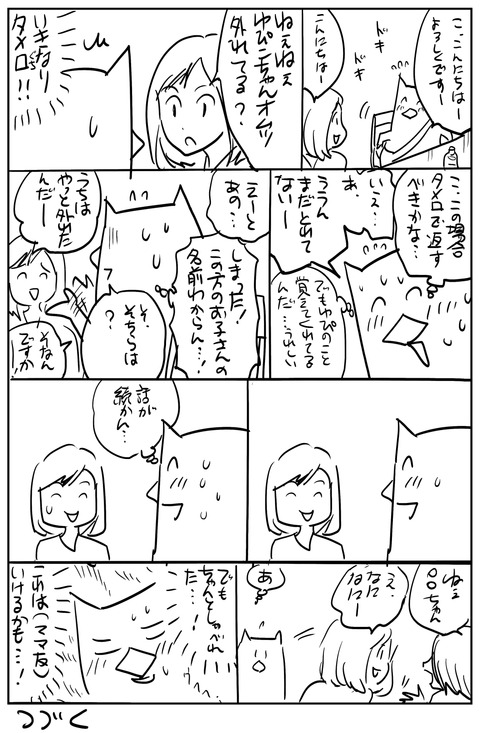 こ、こんにちはー
よろしくですー
ドキ
ドキ
こんにちはー
ねぇねぇ
ゆぴこちゃんオムツ
外れてる?
いきなり
タメ口!!
こ…この場合
タメ口で返す
べきかな…
いえ…
あ、
ううん
まだとれて
ないー
でもゆぴのこと
覚えてくれてる
んだ…うれしい
えーと
あの…
しまった!
この方のお子さんの
名前わからん…!
そ、
そちらは
?
うちは
やっと外れた
んだー
そなん
ですか
話が
続かん…
ねぇ
○○ちゃん
え、
なになにー
あ
でも
ちゃんとしゃべれ
た…!
これは(ママ友)
いけるかも…!
つづく